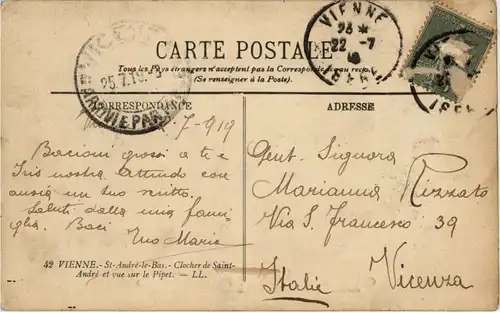 CARTE POSTALE
Tous les Pays étrangers n'acceptent pas la Correspondance au recto
(Se renseigner à la Poste).
VIENNE
22 -7
ISERE
25.7.19
ARRIVI E PAR
CORRESPONDANCE
ADRESSE
7-919
Bacioni grossi a te e
Iris nostra attendo con
ansia un tuo scritto.
Saluti dalla mia fami-
glia. Baci
Tuo Mario
Gent. Signora
Marianna Rizzato
Via S. Francesco 39
Vicenza
Italie
42 VIENNE.- St-André-le-Bas.- Clocher de Saint-
André et vue sur le Pipet. — LL.